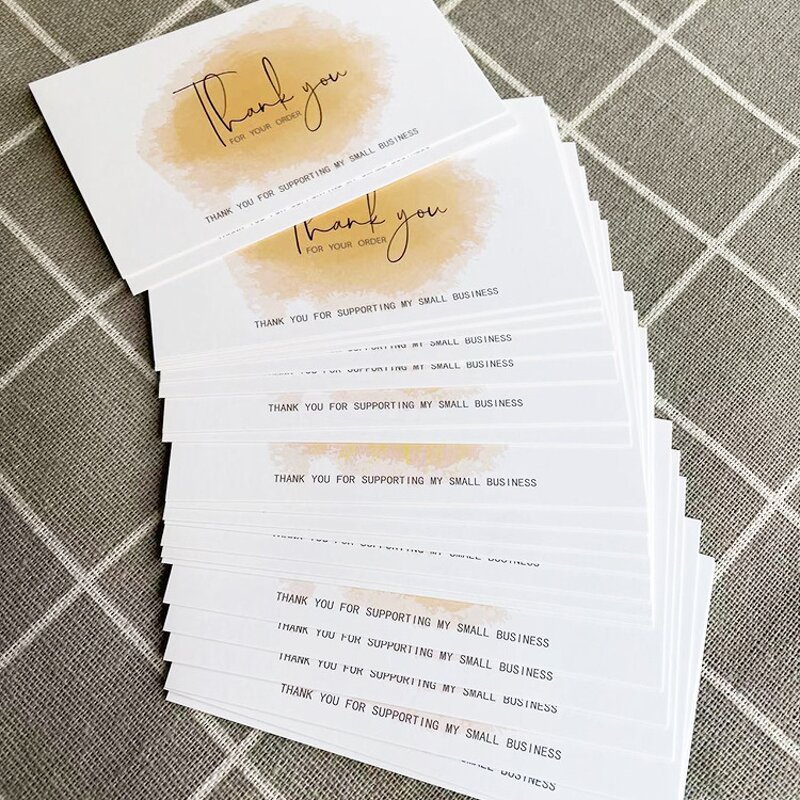 Thank you
FOR YOUR ORDER
THANK YOU FOR SUPPORTING MY SMALL BUSINESS
Thank you
FOR YOUR ORDER
THANK YOU FOR SUPPORTING MY SMALL BUSINESS
THANK YOU FOR SUPPORTING MY SMALL BUSINESS
THANK YOU FOR SUPPORTING MY SMALL BUSINESS
THANK YOU FOR SUPPORTING MY SMALL BUSINESS
THANK YOU FOR SUPPORTING MY SMALL BUSINESS
THANK YOU FOR SUPPORTING MY SMALL BUSINESS
THANK YOU FOR SUPPORTING MY SMALL BUSINESS
THANK YOU FOR SUPPORTING MY SMALL BUSINESS
THANK YOU FOR SUPPORTING MY SMALL BUSINESS
THANK YOU FOR SUPPORTING MY SMALL BUSINESS
SMALL BUSINESS